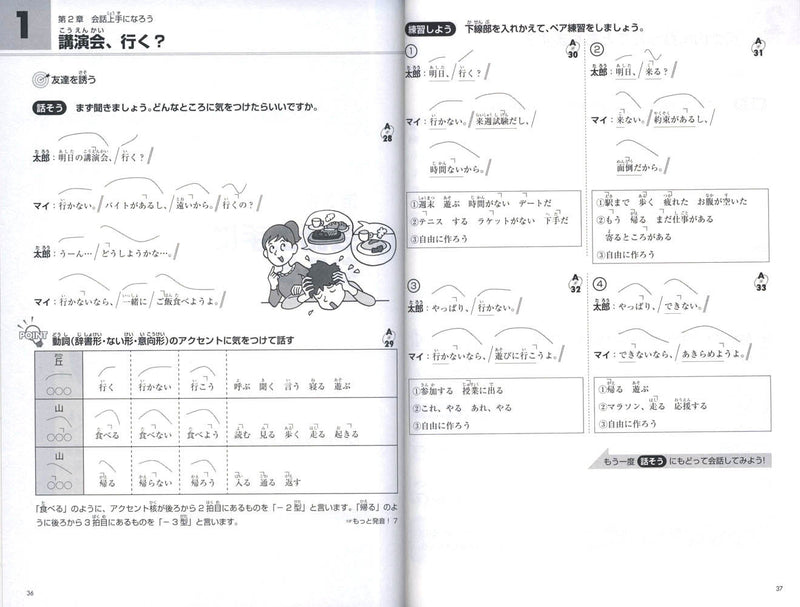 1
第2章 会話上手になろう
講演会、行く？
友達を誘う
話そう まず聞きましょう。どんなところに気をつけたらいいですか。
A 28
太郎：明日の講演会、/行く？/
マイ：行かない。/バイトがあるし、/遠いから。/行くの？/
太郎：うーん…/どうしようかな…。/
マイ：行かないなら、/一緒に/ご飯食べようよ。/
POINT 動詞(辞書形・ない形・意向形)のアクセントに気をつけて話す
A 29
丘 ○○○ 行く 行かない 行こう 呼ぶ 聞く 言う 寝る 遊ぶ
山 ○○○ 食べる 食べない 食べよう 読む 見る 歩く 走る 起きる
山 ○○○ 帰る 帰らない 帰ろう 入る 通る 返す
「食べる」のように、アクセント核が後ろから2拍目にあるものを「－2型」と言います。「帰る」のよ
うに後ろから3拍目にあるものを「－3型」と言います。
☞もっと発音！7
36
練習しよう 下線部を入れかえて、ペア練習をしましょう。
① A 30
太郎：明日、/行く？/
マイ：行かない。/来週試験だし、/
時間ないから。/
①週末 遊ぶ 時間がない デートだ
②テニス する ラケットがない 下手だ
③自由に作ろう
② A 31
太郎：明日、/来る？/
マイ：来ない。/約束があるし、/
面倒だから。/
①駅まで 歩く 疲れた お腹が空いた
②もう 帰る まだ仕事がある
寄るところがある
③自由に作ろう
③ A 32
太郎：やっぱり、/行かない。/
マイ：行かないなら、/遊びに行こうよ。/
①参加する 授業に出る
②これ、やる あれ、やる
③自由に作ろう
④ A 33
太郎：やっぱり、/できない。/
マイ：できないなら、/あきらめようよ。/
①帰る 遊ぶ
②マラソン、走る 応援する
③自由に作ろう
もう一度 話そう にもどって会話してみよう！
37